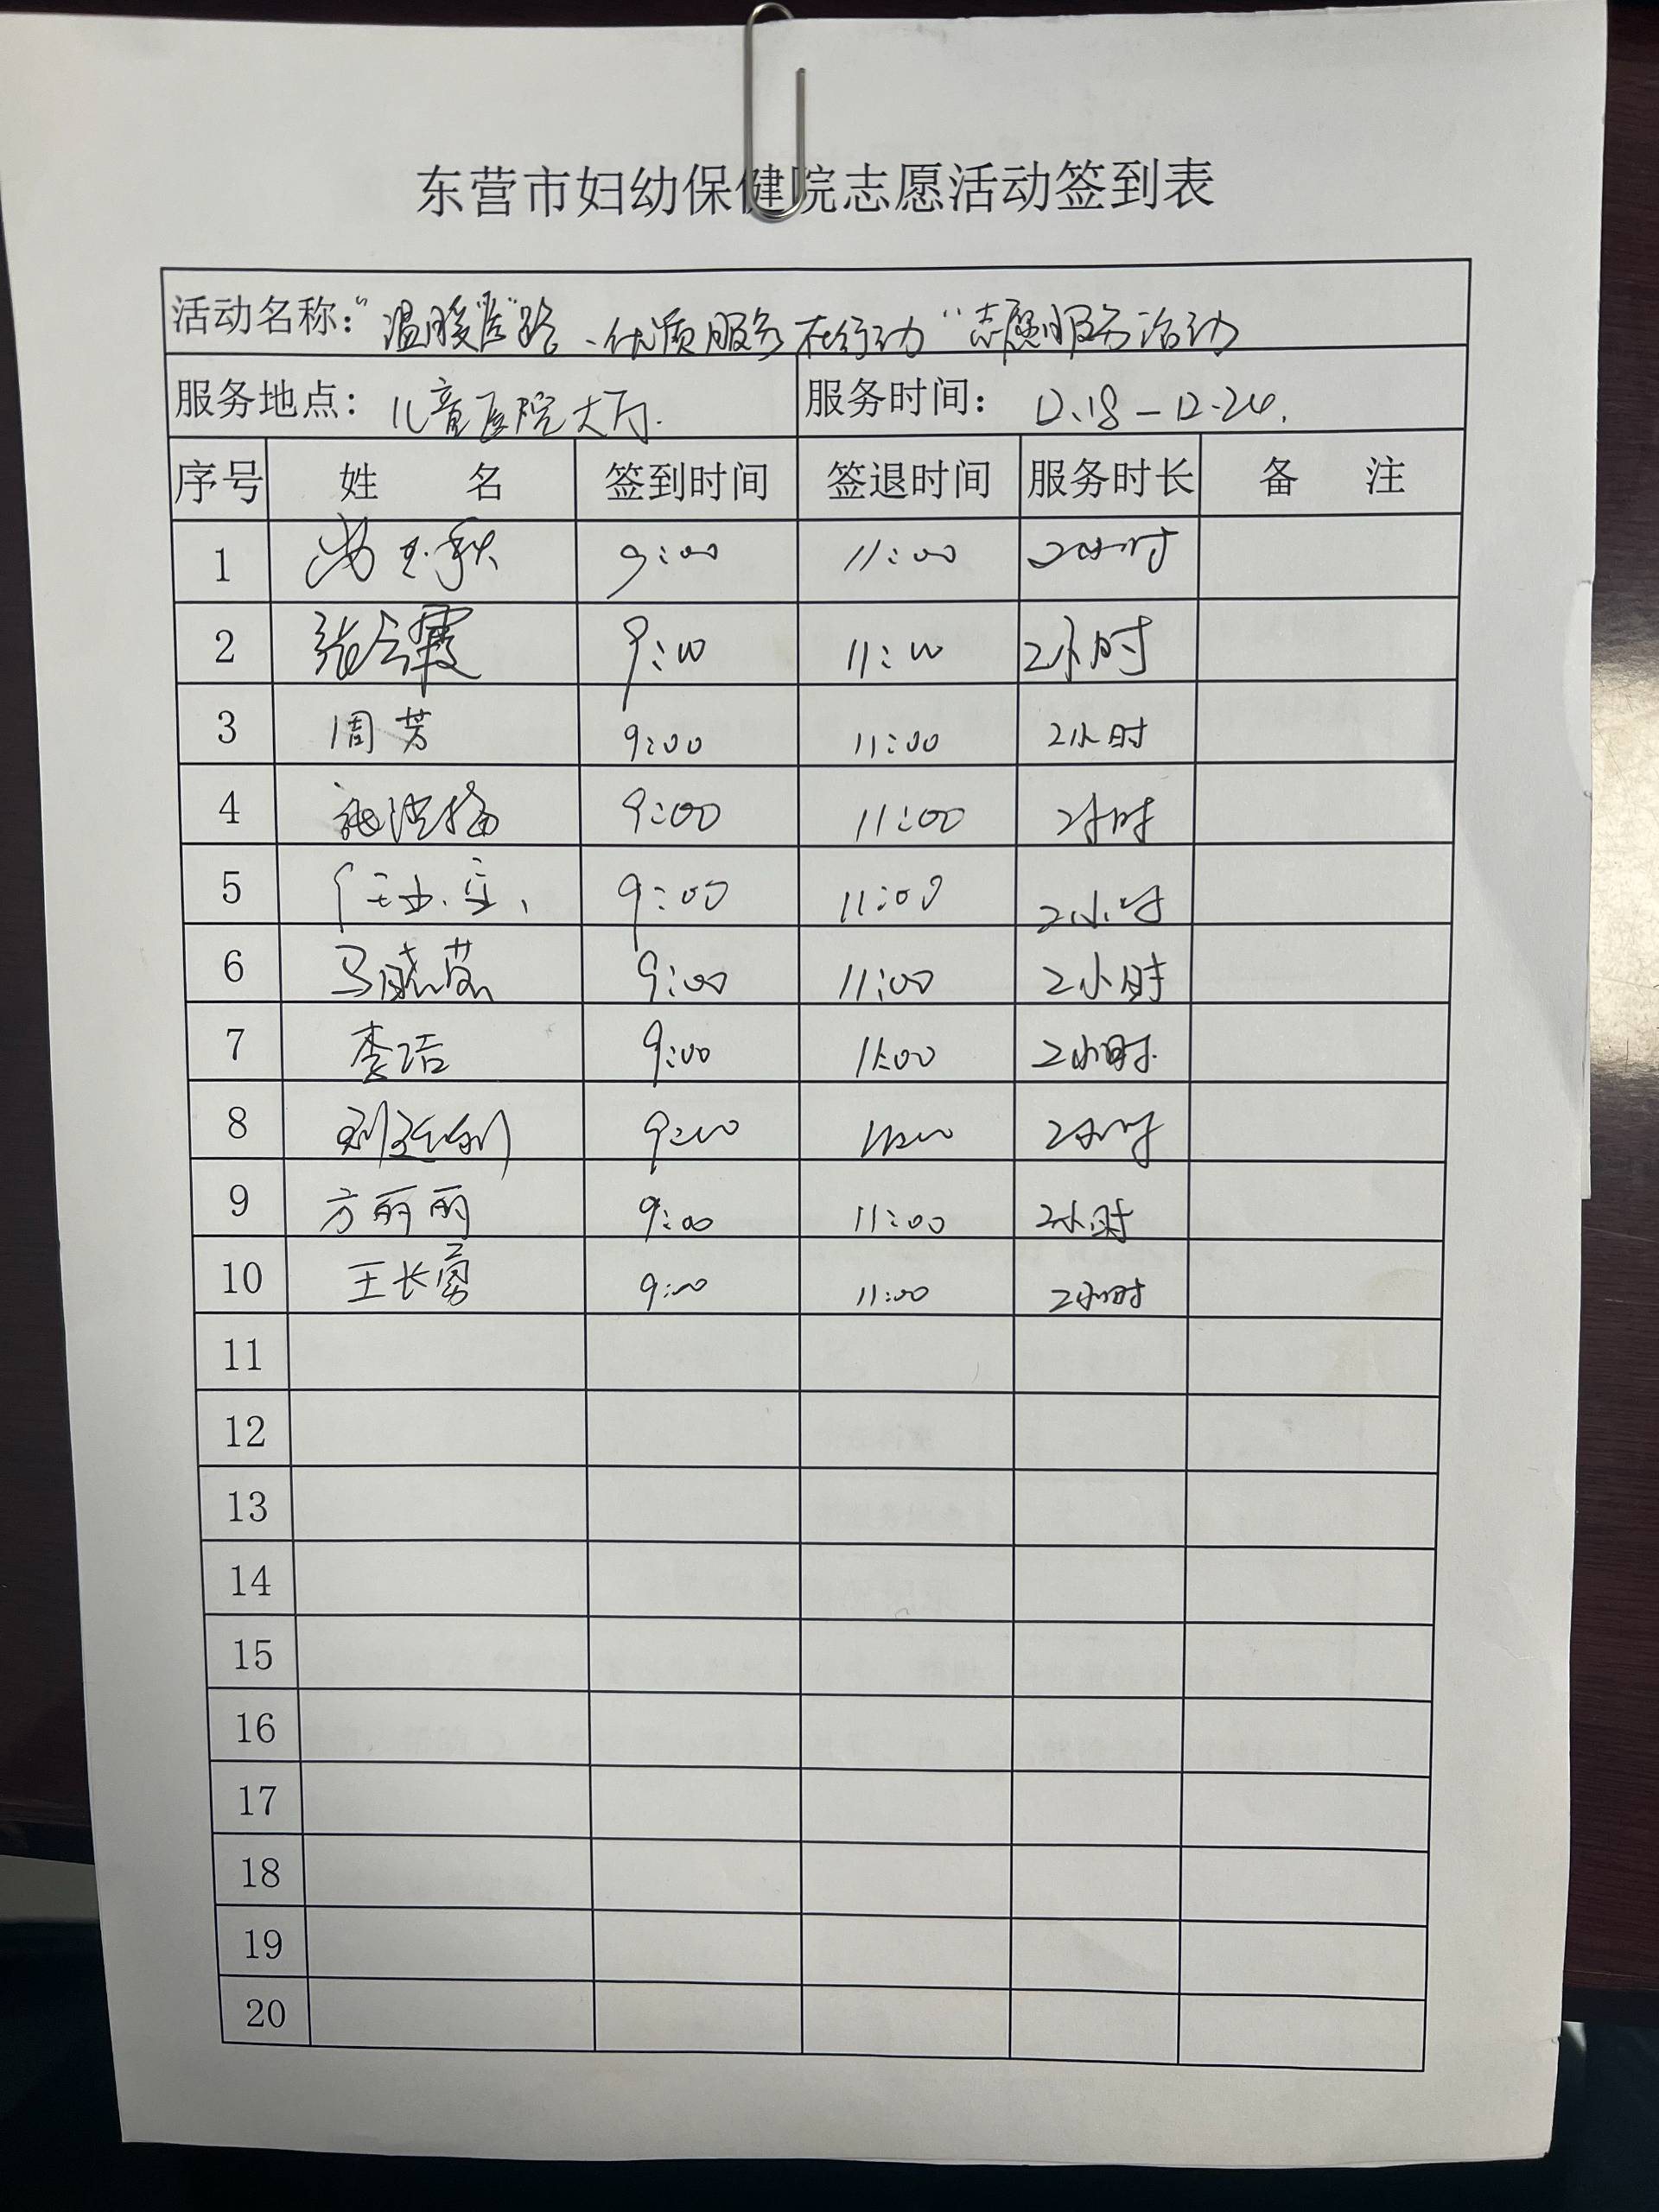 东营市妇幼保健院志愿活动签到表
活动名称：“温暖“医”路、优质服务在行动“志愿服务活动
服务地点：儿童医院大厅. 服务时间：12.18－12.24.
序号 姓 名 签到时间 签退时间 服务时长 备 注
1 9:00 11:00 2小时
2 张云霞 9:00 11:00 2小时
3 周芳 9:00 11:00 2小时
4 9:00 11:00 2小时
5 9:00 11:00 2小时
6 马晓 9:00 11:00 2小时
7 李洁 9:00 11:00 2小时.
8 9:00 11:00 2小时
9 方丽丽 9:00 11:00 2小时
10 王长勇 9:00 11:00 2小时
11
12
13
14
15
16
17
18
19
20